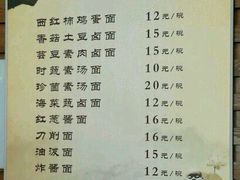 西红柿鸡蛋面 12元/碗
香菇土豆卤面 15元/碗
芸豆素肉卤面 15元/碗
时蔬素汤面 10元/碗
珍菌素汤面 20元/碗
海菜蔬卤面 12元/碗
红葱面 16元/碗
刀削面 16元/碗
油泼面 15元/碗
炸酱面 12元/碗